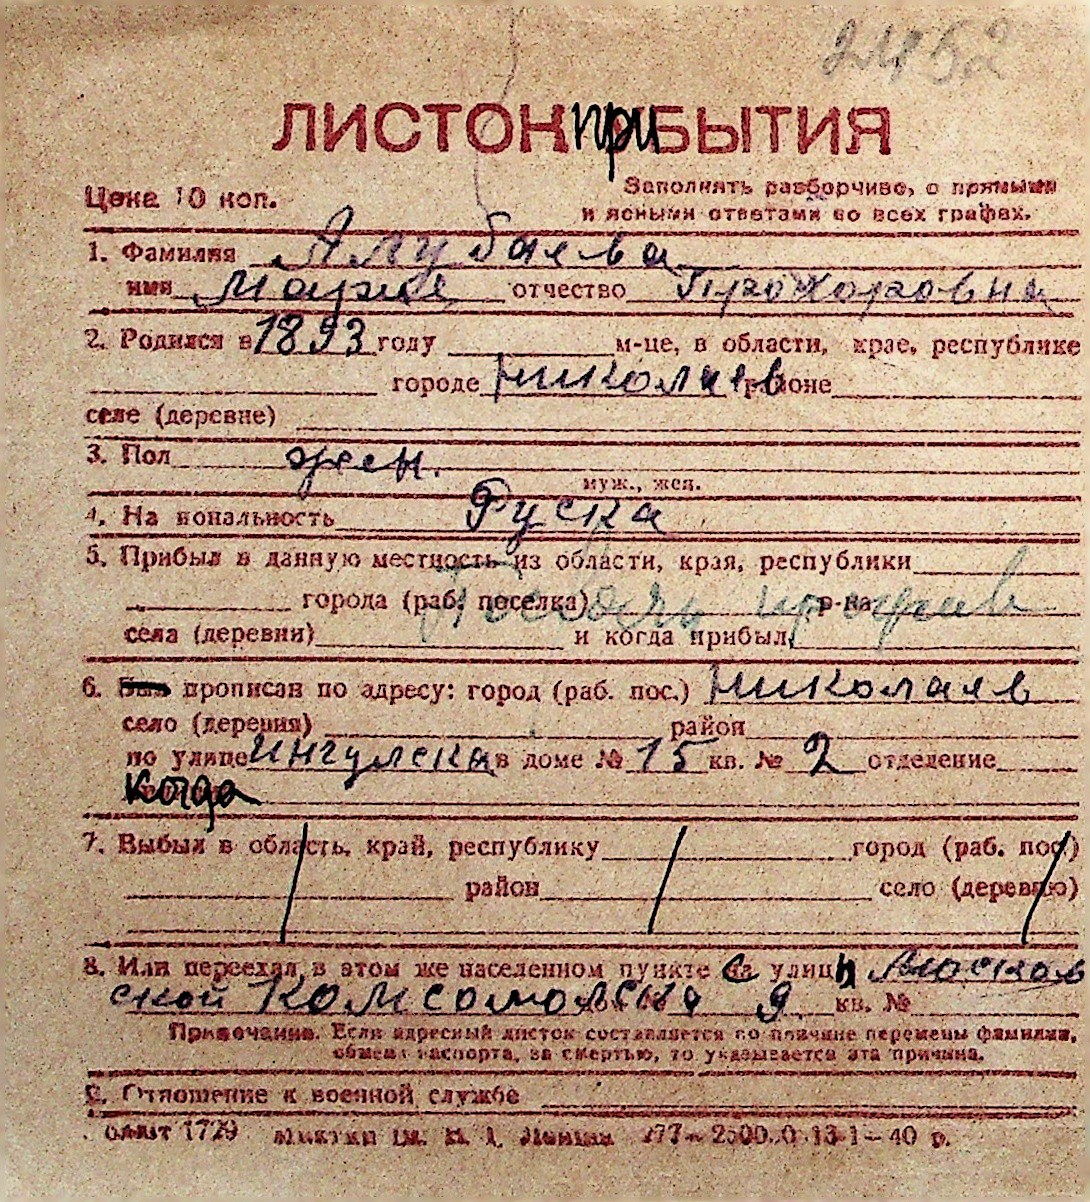 2452
ЛИСТОК ПРИБЫТИЯ
Цена 10 коп.
Заполнять разборчиво, с прямыми
и ясными ответами во всех графах.
1. Фамилия Алубаева
имя Мария отчество Прохоровна
2. Родился в 1893 году м-це, в области, крае, республике
городе Николаев районе
селе (деревне)
3. Пол жен.
муж., жен.
4. Национальность Руска
5. Прибыл в данную местность из области, края, республики
города (раб. поселка) р-на
села (деревни) и когда прибыл
6. Был прописан по адресу: город (раб. пос.) Николаев
село (деревня) район
по улице Ингулска в доме № 15 кв. № 2 отделение
когда
7. Выбыл в область, край, республику город (раб. пос.)
район село (деревню)
8. Или переехал в этом же населенном пункте с улицы Московской
Комсомолска 9 кв. №
Примечание. Если адресный листок составляется по причине перемены фамилии,
обмена паспорта, за смертью, то указывается эта причина.
9. Отношение к военной службе
1729 40 р.